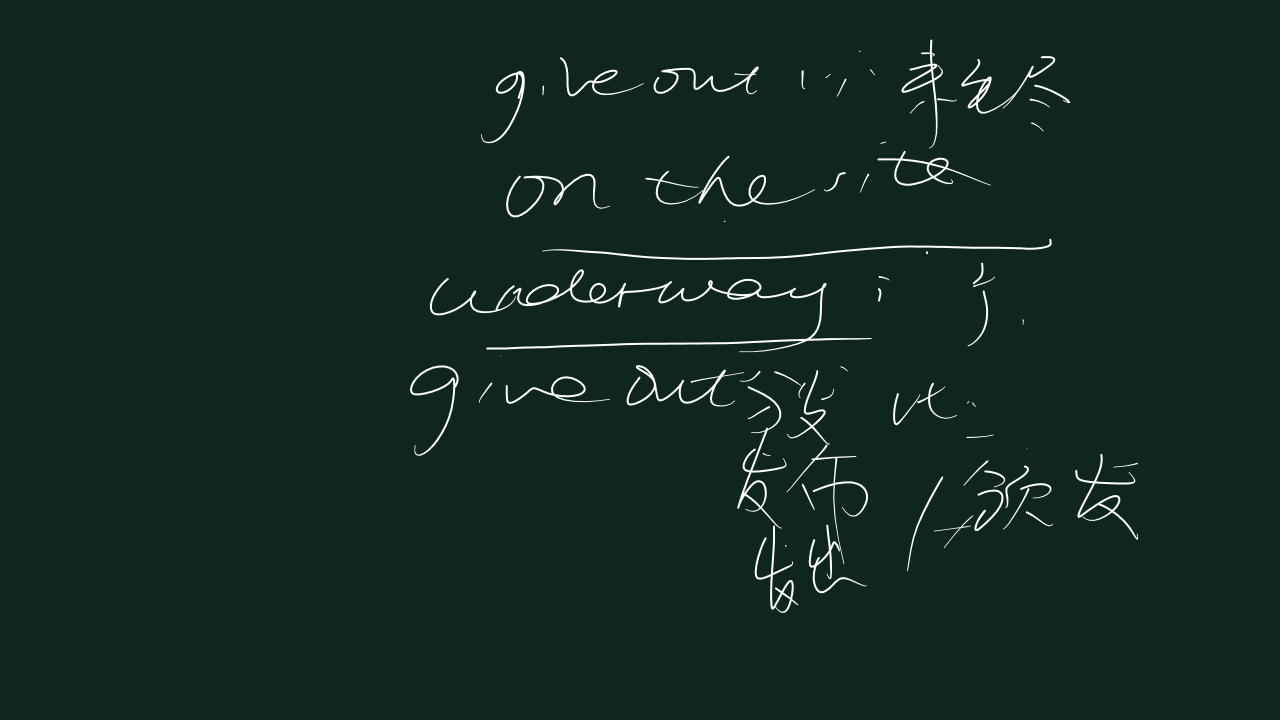 give out
on the site
underway :
give out 分发 vt.
发布 / 颁发
发出